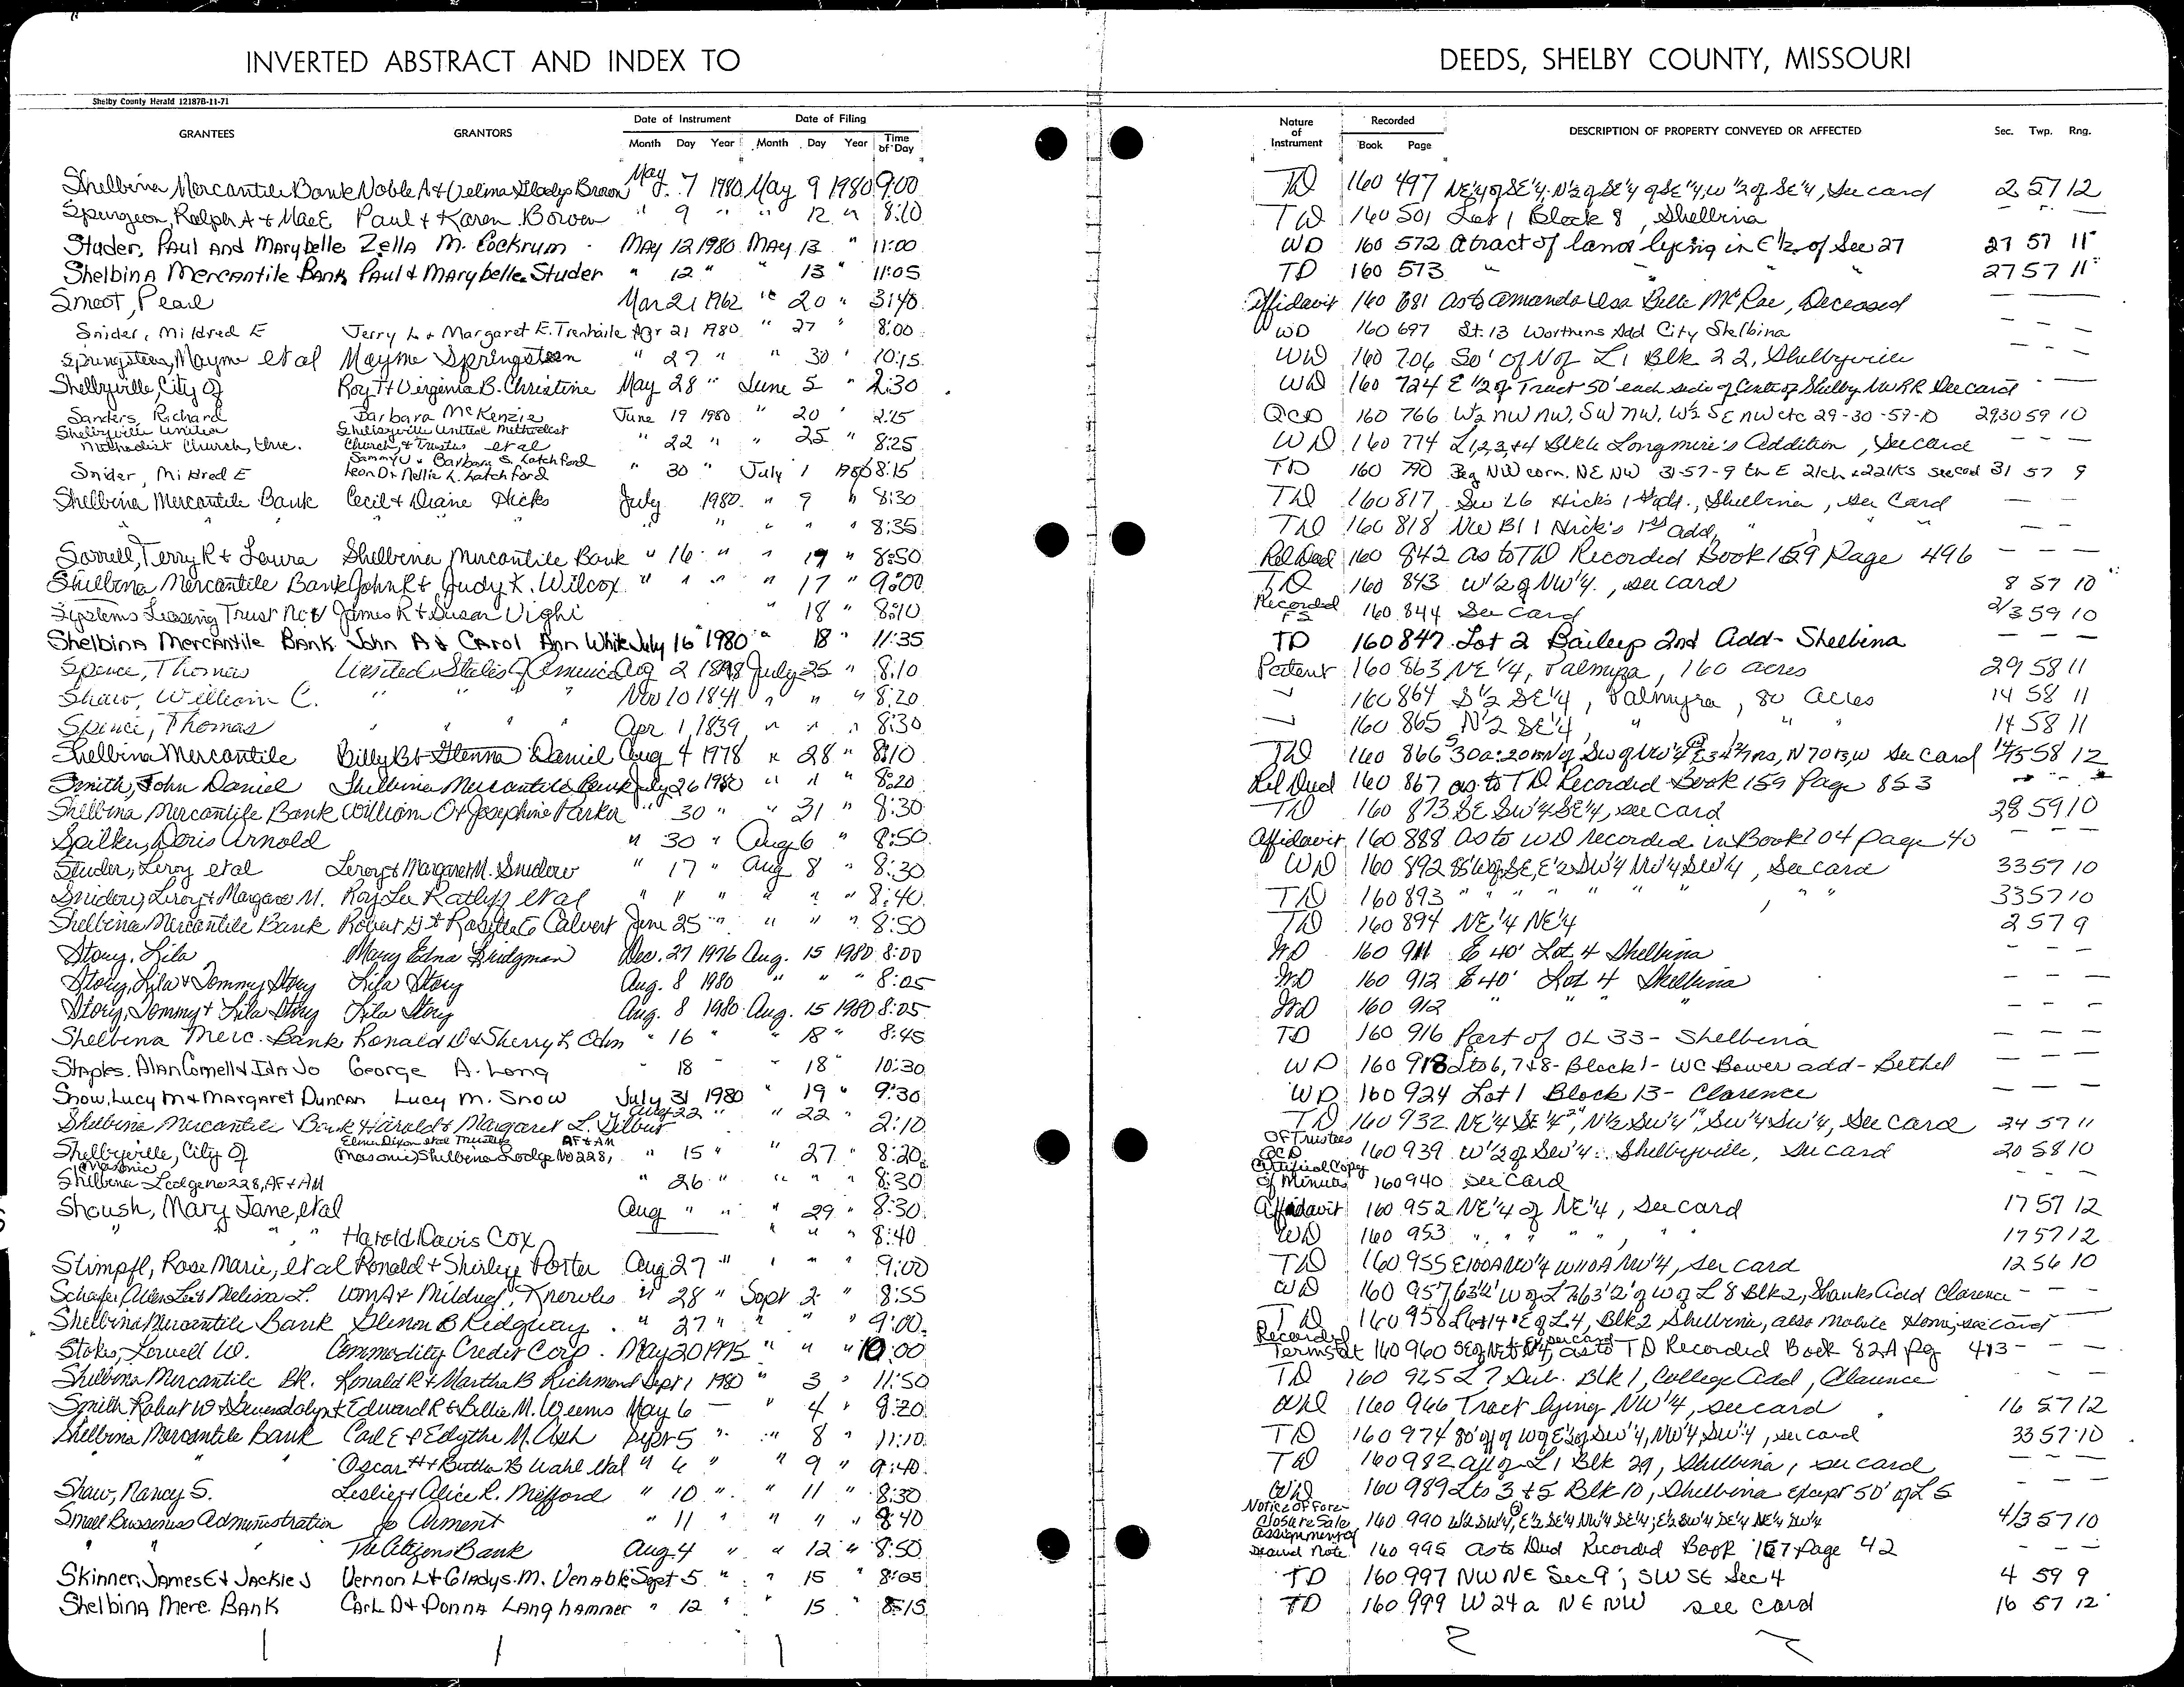 INVERTED ABSTRACT AND INDEX TO
DEEDS, SHELBY COUNTY, MISSOURI
Shelby County Herald 12187B-11-71
GRANTEES GRANTORS Date of Instrument Month Day Year Date of Filing Month Day Year Time of Day
Nature of Instrument Recorded Book Page DESCRIPTION OF PROPERTY CONVEYED OR AFFECTED Sec. Twp. Rng.
Shelbina Mercantile Bank Noble A & Velma Gladys Brown May 7 1980 May 9 1980 9:00 TD 160 497 NE¼ of SE¼, N½ of SE¼ of SE¼, W½ of SE¼, see card 2 57 12
Spurgeon, Ralph A & Mae E Paul & Karen Bowen " 9 " " 12 " 8:10 TD 160 501 Lot 1 Block 8, Shelbina - - -
Studer, Paul and Marybelle Zella M. Cockrum May 12 1980 May 13 " 11:00 WD 160 572 A tract of land lying in E½ of Sec 27 27 57 11
Shelbina Mercantile Bank Paul & Marybelle Studer " 12 " " 13 " 11:05 TD 160 573 " " " 27 57 11
Smoot, Pearl Mar 21 1962 " 20 " 3:40 Affidavit 160 681 As to Amanda Belle McRae, Deceased
Snider, Mildred E Jerry L & Margaret E. Trenhaile Apr 21 1980 " 27 " 8:00 WD 160 697 Lt. 13 Worthens Add City Shelbina - - -
Springsteen, Mayme et al Mayme Springsteen " 27 " " 30 " 10:15 WD 160 706 50' of N of L1 Blk 22, Shelbyville - - -
Shelbyville, City Of Roy T & Virginia B. Christine May 28 " June 5 " 2:30 WD 160 724 E½ of Tract 50' each side of Center of Shelby NW RR See card
Sanders, Richard Barbara McKenzie June 19 1980 " 20 " 2:15 QCD 160 766 W½ NW NW, SW NW, W½ SE NW etc 29-30-59-10 2930 59 10
Shelbyville United Methodist Church, Shelbyville United Methodist Church, & Trustees et al " 22 " " 25 " 8:25 WD 160 774 L1,2,3,&4 Longmire's Addition, see card - - -
Snider, Mildred E Sammy U & Barbara S. Latchford Leon D & Nellie L. Latchford " 30 " July 1 1980 8:15 TD 160 790 Beg NW corn. NE NW 31-57-9 th E 21ch & 22lks see card 31 57 9
Shelbina Mercantile Bank Cecil & Diane Hicks July 1980 " 9 " 8:30 TD 160 817 SW L6 Hicks 1st Add., Shelbina, see card - -
" " " " " " " " 8:35 TD 160 818 NW Bl 1 Hick's 1st add, " " " - -
Sorrell, Terry R & Laura Shelbina Mercantile Bank " 16 " " 17 " 8:50 Rel Deed 160 842 as to TD Recorded Book 159 Page 496 - - -
Shelbina Mercantile Bank John R & Judy K. Wilcox " " " " 17 " 9:00 TD 160 843 W½ of NW¼, see card 8 57 10
Systems Leasing Trust James R & Susan Vighi " 18 " 8:10 Recorded FS 160 844 See card 2/3 59 10
Shelbina Mercantile Bank John A & Carol Ann White July 16 1980 " 18 " 11:35 TD 160 847 Lot 2 Baileys 2nd Add- Shelbina - - -
Spence, Thomas United States of America Aug 2 1848 July 25 " 8:10 Patent 160 863 NE¼, Palmyra, 160 acres 29 58 11
Shaw, William C. " " " Nov 10 1841 " " " 8:20 160 864 S½ SE¼, Palmyra, 80 Acres 14 58 11
Spence, Thomas " " " " Apr 1 1839 " " " 8:30 160 865 N½ SE¼, " " " 14 58 11
Shelbina Mercantile Billy B & Glenna Daniel Aug 4 1978 " 28 " 8:10 TD 160 866 see card 58 12
Smith, John Daniel Shelbina Mercantile Bank July 26 1980 " " " 8:20 Rel Deed 160 867 as to TD Recorded Book 159 Page 853 - - -
Shelbina Mercantile Bank William O & Josephine Parker " 30 " " 31 " 8:30 TD 160 873 SE SW¼ SE¼, see card 28 59 10
Spilker, Doris Arnold " 30 " Aug 6 " 8:50 Affidavit 160 888 as to WD recorded in Book 104 page 40 - - -
Studer, Leroy et al Leroy & Margaret M. Snidow " 17 " Aug 8 " 8:30 WD 160 892 E½ SW¼ NW¼ SW¼, see card 33 57 10
Snidow, Leroy & Margaret M. Roy Lee Ratliff et al " " " " " " 8:40 TD 160 893 " " " " " " 33 57 10
Shelbina Mercantile Bank Robert G & Rosetta E Calvert June 25 " " " " 8:50 TD 160 894 NE¼ NE¼ 2 57 9
Story, Lila Mary Edna Bridgman Dec. 27 1976 Aug. 15 1980 8:00 WD 160 911 E 40' Lot 4 Shelbina - - -
Story, Lila & Tommy Story Lila Story Aug. 8 1980 " " " 8:05 WD 160 912 E 40' Lot 4 Shelbina - - -
Story, Tommy & Lila Story Lila Story Aug. 8 1980 Aug. 15 1980 8:05 WD 160 912 " " " " - - -
Shelbina Merc. Bank Ronald D & Sherry L Odin " 16 " " 18 " 8:45 TD 160 916 Part of OL 33- Shelbina - - -
Staples, Alan Cornell & Ida Jo George A. Long " 18 " 18 " 10:30 WD 160 918 Lts 6, 7 & 8- Block 1- WC Bower add- Bethel - - -
Snow, Lucy M & Margaret Duncan Lucy M. Snow July 31 1980 " 19 " 9:30 WD 160 924 Lot 1 Block 13- Clarence - - -
Shelbina Mercantile Bank Harold & Margaret L. Wilbur Aug 22 " " 22 " 2:10 TD 160 932 NE¼ SE¼, N½ SW¼, SW¼ SW¼, see card 24 57 11
Shelbyville, City Of Elmer Dixon et al Trustees (Masonic) Shelbina Lodge No 228, AF & AM " 15 " " 27 " 8:20 Of Trustees QCD 160 939 W½ of SW¼, Shelbyville, see card 20 58 10
Shelbina Masonic Lodge no 228, AF & AM " 26 " " " " 8:30 Certified Copy of Minutes 160 940 see card - - -
Shoush, Mary Jane, et al Aug " " " 29 " 8:30 Affidavit 160 952 NE¼ of NE¼, see card 17 57 12
" " " Harold Davis Cox " " " 8:40 WD 160 953 " " " " 17 57 12
Stimpfl, Rose Marie, et al Ronald & Shirley Porter Aug 27 " " " " 9:00 TD 160 955 E100A NW¼ W110A NW¼, see card 12 56 10
Schafer, Allen Lee & Melissa L. Wm A & Mildred Knowles " 28 " Sept 2 " 8:55 WD 160 957 63½' W of L7 63½' of W of L 8 Blk 2, Shanks Add Clarence - - -
Shelbina Mercantile Bank Glenon B Ridgway " 27 " " " " 9:00 TD 160 958 L6 & 14' E of L4, Blk 2 Shelbina, also mobile home, see card
Stokes, Lowell W. Commodity Credit Corp. May 20 1975 " " " 10:00 Recorded Term Stat 160 960 as to TD Recorded Book 82A Pg 413 - - -
Shelbina Mercantile Bk. Ronald R & Martha B Richmond Sept 1 1980 " 3 " 11:50 TD 160 965 L7 Sub. Blk 1, College Add, Clarence - - -
Smith, Robert W & Gwendolyn Edward R & Billie M. Weems May 6 — " 4 " 8:20 WD 160 966 Tract lying NW¼, see card 16 57 12
Shelbina Mercantile Bank Carl E & Edythe M. Ash Sept 5 " " 8 " 11:10 TD 160 974 80' off of W of E½ of SW¼, NW¼, SW¼, see card 33 57 10
" " " Oscar H & Bertha B Wahl et al " 6 " " 9 " 9:40 TD 160 982 all of L1 Blk 29, Shelbina, see card - - -
Shaw, Nancy S. Leslie & Alice R. Mefford " 10 " " 11 " 8:30 WD 160 989 Lts 3 & 5 Blk 10, Shelbina except 50' of L5
Small Bussiness Administration Jo Arment " 11 " " " " 8:40 Notice of Foreclosure Sale 160 990 W½ SW¼, E½ SE¼ NW¼ SE¼; E½ SW¼ SE¼ NE¼ SW¼ 4/3 57 10
" " " The Citizens Bank Aug 4 " " 12 " 8:50 Assignment of Deed Note 160 995 as to Deed Recorded Book 157 Page 42 - - -
Skinner, James E & Jackie J Vernon L & Gladys M. Venable Sept 5 " " 15 " 8:05 TD 160 997 NW NE Sec 9; SW SE Sec 4 4 59 9
Shelbina Merc. Bank Carl D & Donna Langhammer " 12 " " 15 " 8:15 TD 160 999 W 24a NE NW see card 16 57 12